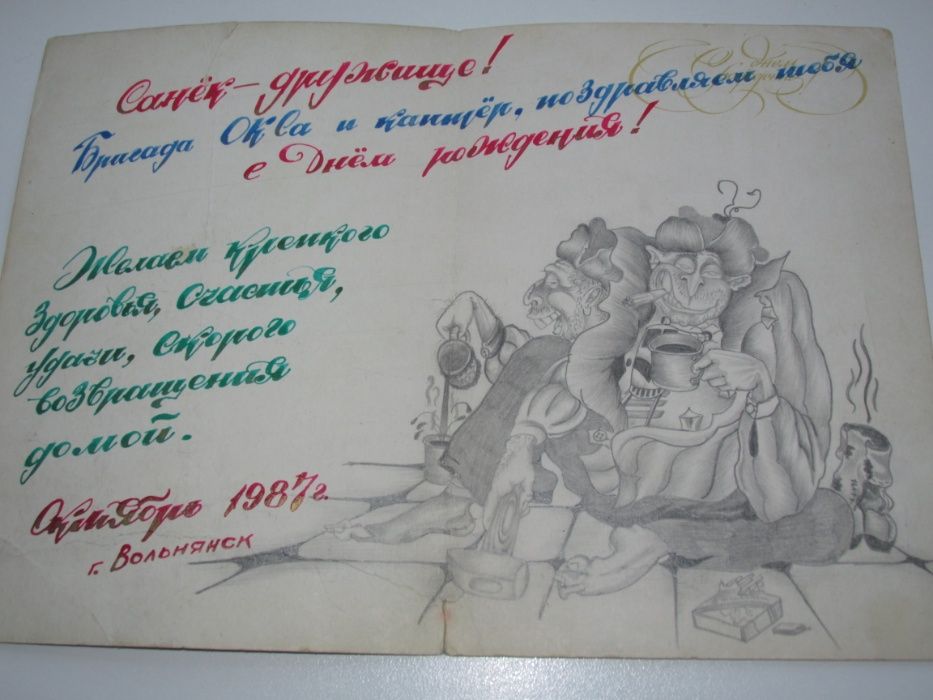 Санёк - дружище!
Бригада ОКВа и каптёр, поздравляем тебя
с Днём рождения!
С днём рождения
Желаем крепкого
Здоровья, счастья,
удачи, скорого
возвращения
домой.
Октябрь 1987г.
г. Вольнянск